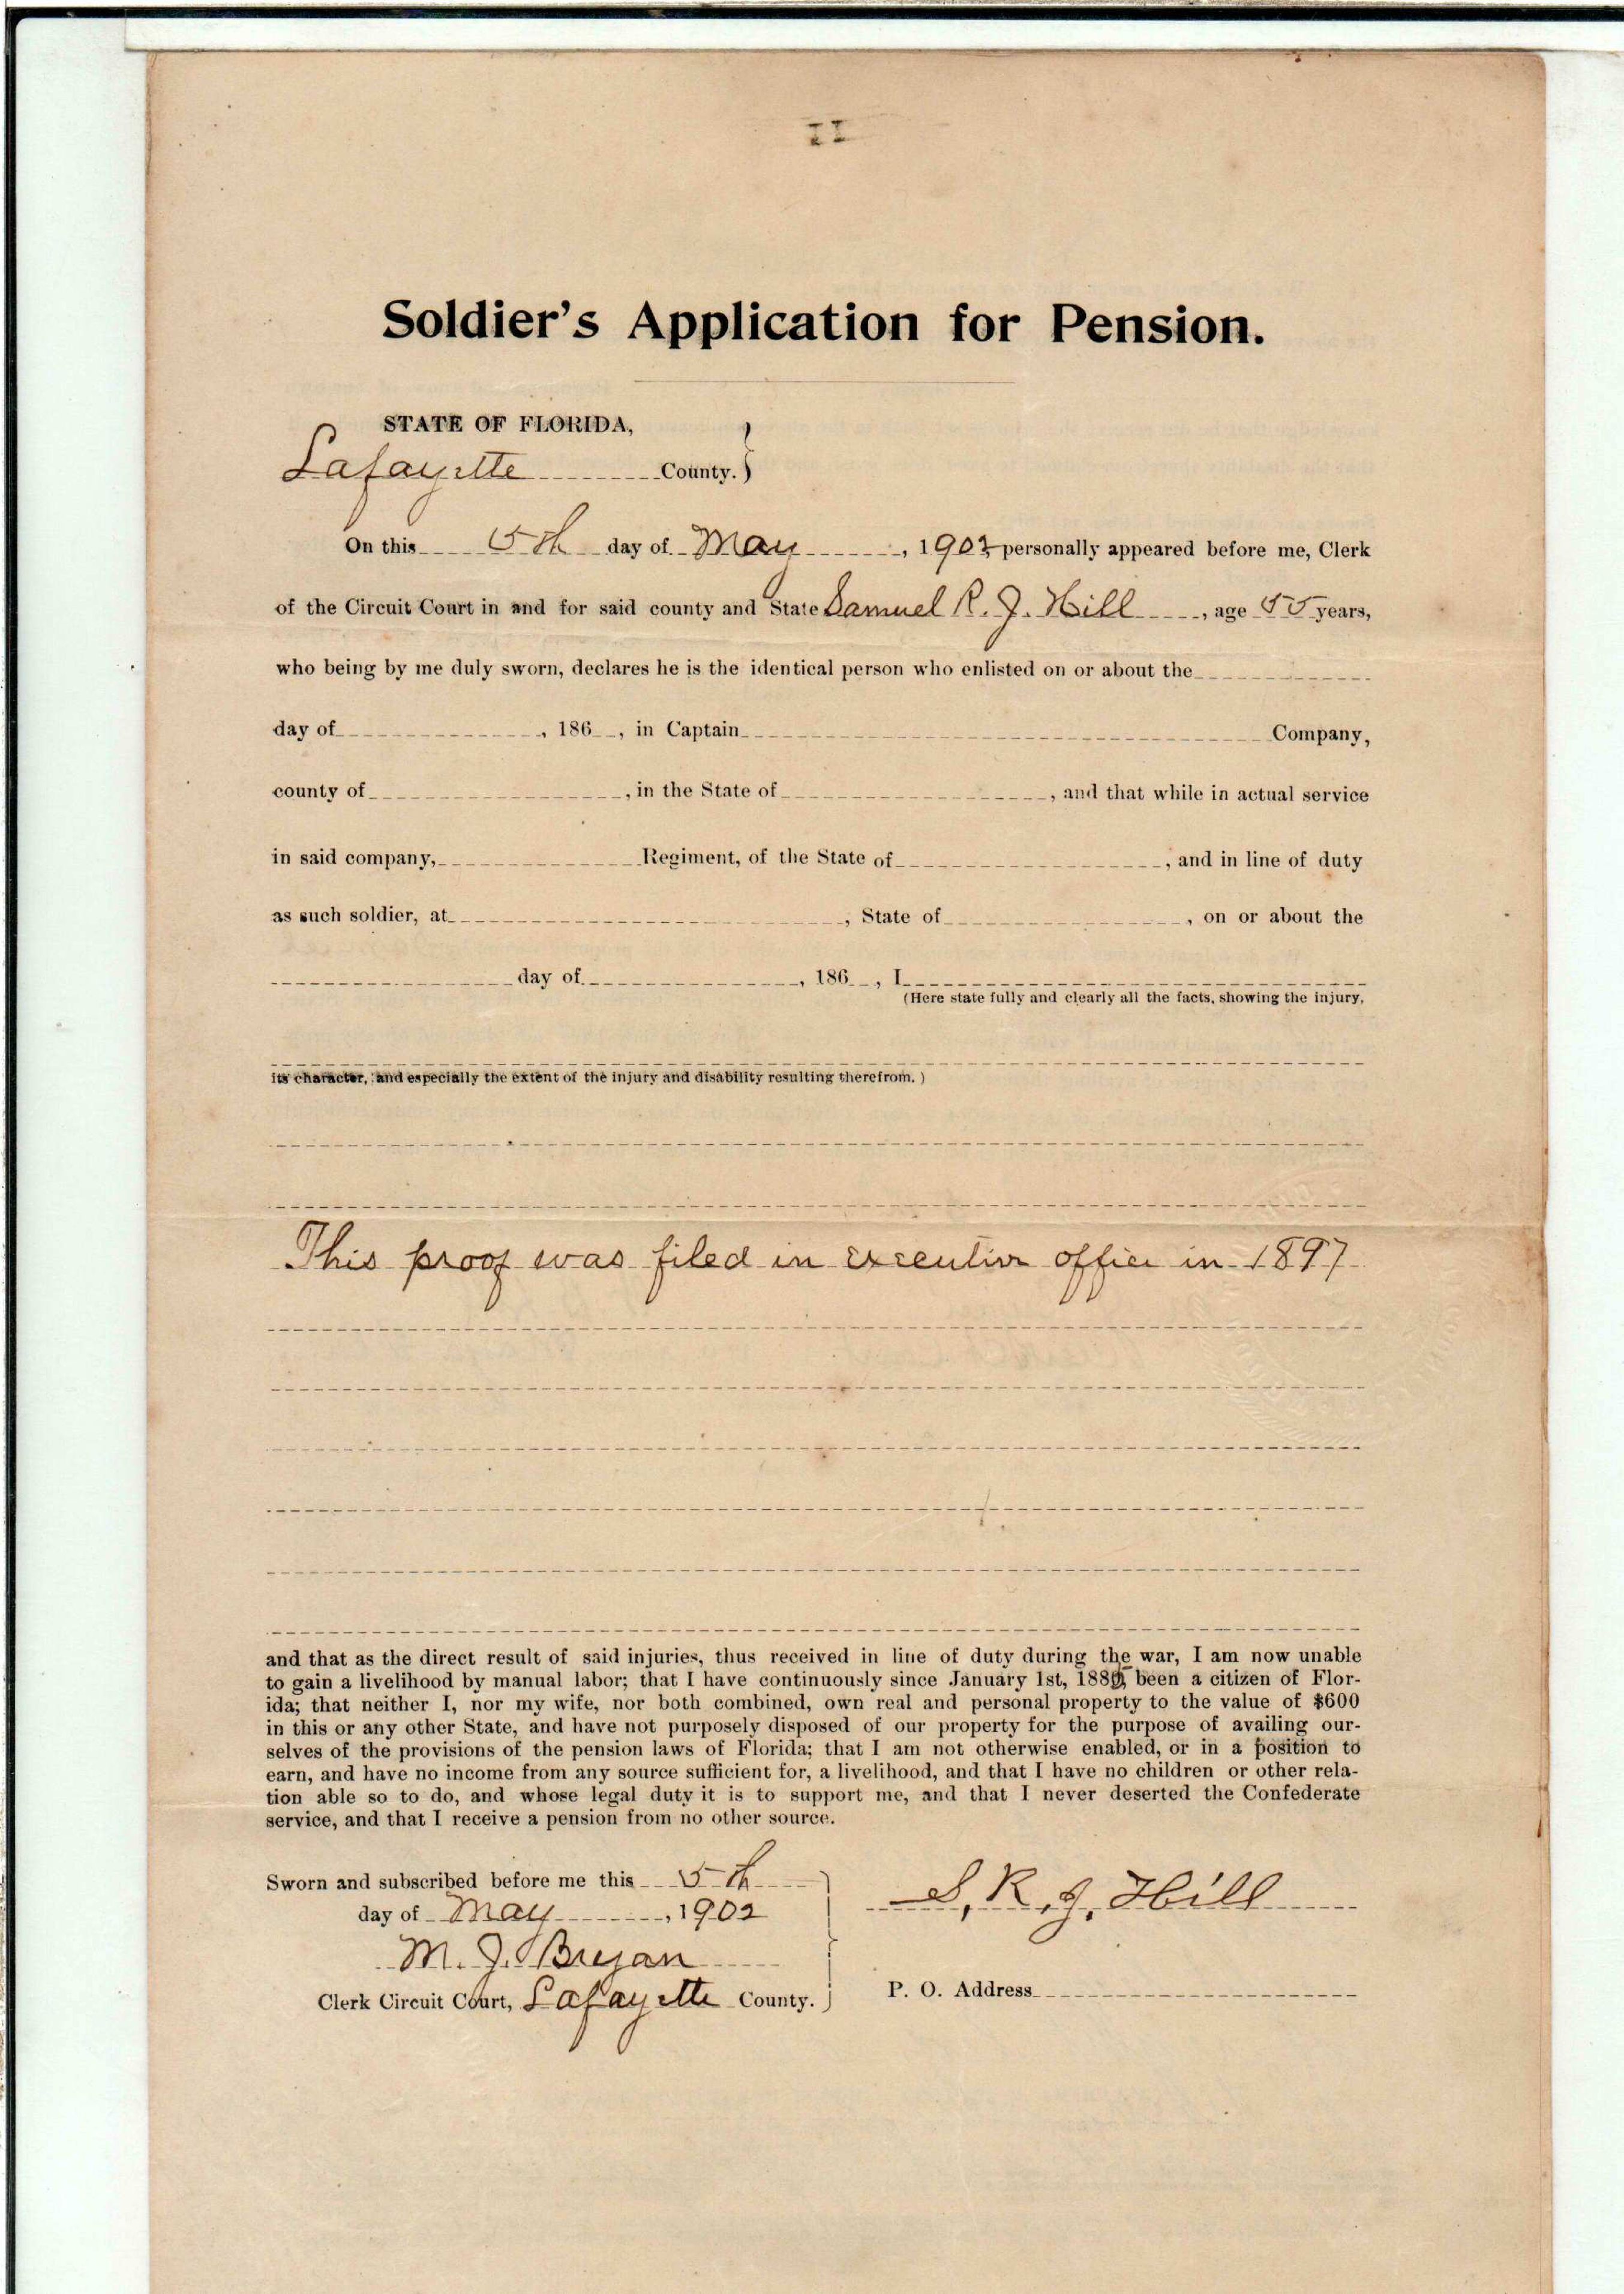 Soldier's Application for Pension.
STATE OF FLORIDA,
Lafayette County.
On this 5th day of May, 1902 personally appeared before me, Clerk
of the Circuit Court in and for said county and State Samuel R. J. Hill, age 55 years,
who being by me duly sworn, declares he is the identical person who enlisted on or about the
day of , 186 , in Captain Company,
county of , in the State of , and that while in actual service
in said company, Regiment, of the State of , and in line of duty
as such soldier, at , State of , on or about the
day of , 186 , I
(Here state fully and clearly all the facts, showing the injury,
its character, and especially the extent of the injury and disability resulting therefrom.)
This proof was filed in executive office in 1897
and that as the direct result of said injuries, thus received in line of duty during the war, I am now unable
to gain a livelihood by manual labor; that I have continuously since January 1st, 188 been a citizen of Flor-
ida; that neither I, nor my wife, nor both combined, own real and personal property to the value of $600
in this or any other State, and have not purposely disposed of our property for the purpose of availing our-
selves of the provisions of the pension laws of Florida; that I am not otherwise enabled, or in a position to
earn, and have no income from any source sufficient for, a livelihood, and that I have no children or other rela-
tion able so to do, and whose legal duty it is to support me, and that I never deserted the Confederate
service, and that I receive a pension from no other source.
Sworn and subscribed before me this 5th
day of May, 1902
S. R. J. Hill
M. J. Bryan
Clerk Circuit Court, Lafayette County.
P. O. Address